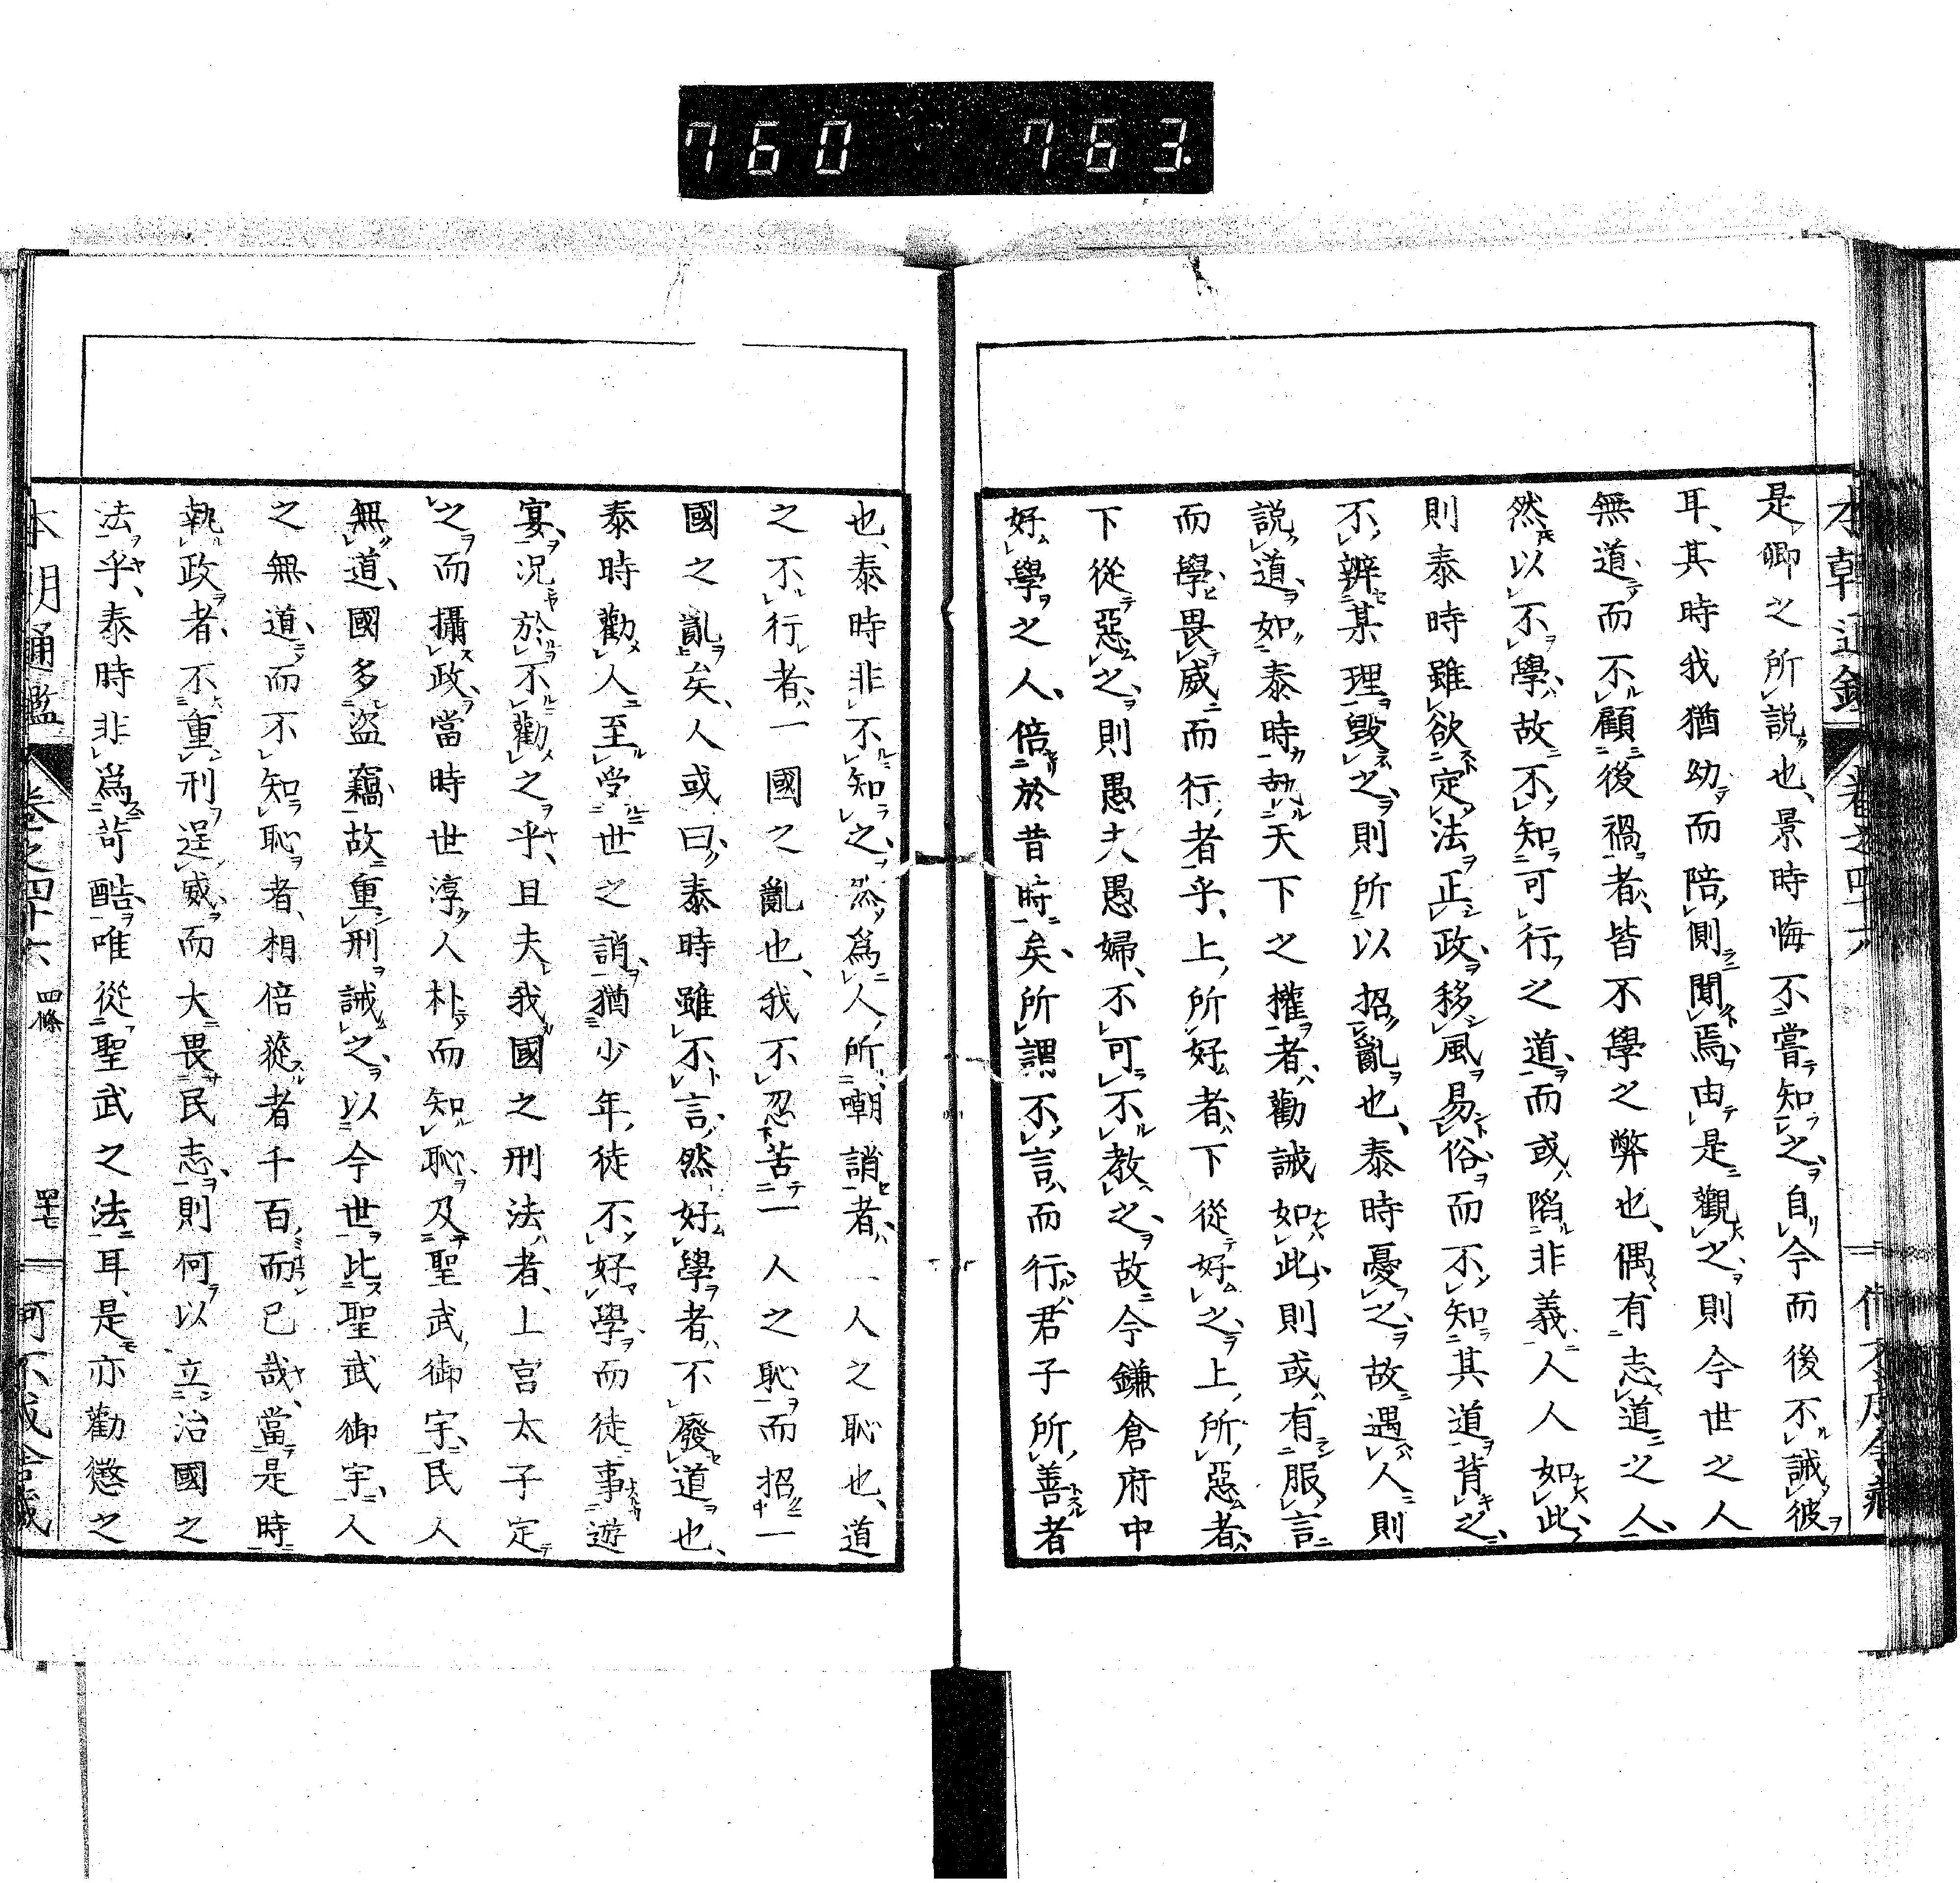 760 763
本朝通鑑 卷之四十六
是卿之所説也、景時悔不嘗知之、自今而後不誡彼
耳、其時我猶幼而陪側聞焉、由是觀之、則今世之人
無道而不顧後禍者、皆不學之弊也、偶有志道之人、
然以不學故不知可行之道、而或陷非義、人人如此、
則泰時雖欲定法正政、移風易俗、而不知其道背之、
不辨某理毀之、則所以招亂也、泰時憂之、故遇人則
説道、如泰時執天下之權者、勸誡如此、則或有服言
而學、畏威而行者乎、上所好者、下從好之、上所惡者、
下從惡之、則愚夫愚婦、不可不教之、故今鎌倉府中
好學之人、倍於昔時矣、所謂不言、而行君子所善者
也、泰時非不知之、然爲人所嘲誚者、一人之恥也、道
之不行者、一國之亂也、我不忍苦一人之恥而招一
國之亂矣、人或曰、泰時雖不言、然好學者、不廢道也、
泰時勸人至受世之誚、猶少年徒不好學、而徒事遊
宴、況於不勸之乎、且夫我國之刑法者、上宮太子定
之而攝政、當時世淳人朴而知恥、及聖武御宇、民人
無道、國多盜竊、故重刑誡之、以今世比聖武御宇、人
之無道、而不知恥者、相倍蓰者千百而已哉、當是時
執政者、不重刑逞威、而大畏民志、則何以立治國之
法乎、泰時非爲苛酷、唯從聖武之法耳、是亦勸懲之
本朝通鑑 卷之四十六 四條 四十七